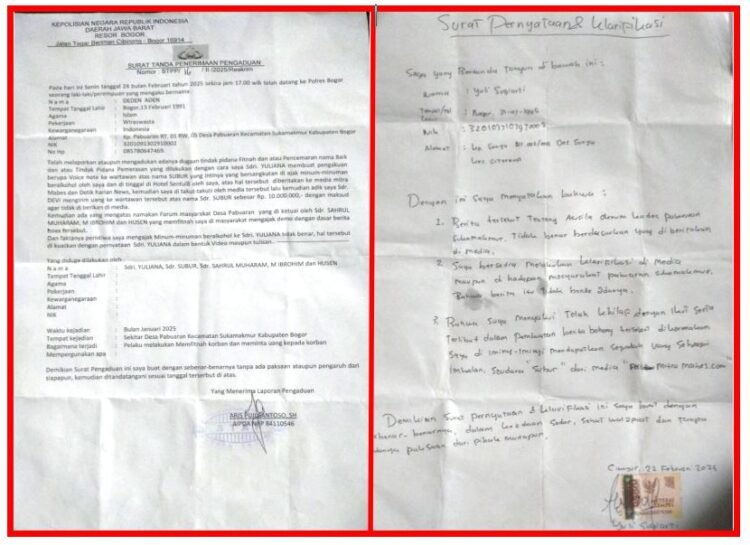 KEPOLISIAN NEGARA REPUBLIK INDONESIA
DAERAH JAWA BARAT
RESOR BOGOR
Jalan Tegar Beriman Cibinong - Bogor 16914
SURAT TANDA PENERIMAAN PENGADUAN
Nomor : STPP/ / II /2025/Reskrim
Pada hari ini Senin tanggal 24 bulan Februari tahun 2025 sekira jam 17.00 wib telah datang ke Polres Bogor
seorang laki-laki/perempuan yang mengaku bernama:
N a m a : DEDEN ADEN
Tempat Tanggal Lahir : Bogor,13 Februari 1991
Agama : Islam
Pekerjaan : Wiraswasta
Kewarganegaraan : Indonesia
Alamat : Kp. Pabuaran RT. 01 RW. 05 Desa Pabuaran Kecamatan Sukamakmur Kabupaten Bogor
NIK
No Hp
Telah melaporkan ataupun mengadukan adanya dugaan tindak pidana Fitnah dan atau Pencemaran nama Baik
dan atau Tindak Pidana Pemerasan yang dilakukan dengan cara saya Sdri. YULIANA membuat pengakuan
berupa Voice note ke wartawan atas nama SUBUR yang intinya yang bersangkutan di ajak minum-minuman
beralkohol oleh saya dan di tinggal di Hotel Sentul oleh saya, atas hal tersebut diberitakan ke media mitra
Mabes dan Dotik Harian News, kemudian saya di takut takuti oleh media tersebut lalu kemudian adik saya Sdr.
DEVI mengirim uang ke wartawan tersebut atas nama Sdr. SUBUR sebesar Rp. 10.000.000,- dengan maksud
agar tidak di berikan di media.
Kemudian ada yang mengatas namakan Forum masyarakat Desa Pabuaran yang di ketuai oleh Sdr. SAHRUL
MUHARAM, M IBROHIM dan HUSEN yang memfitnah saya di masyarakat mengajak demo dengan dasar berita
hoax tersebut.
Dan faktanya peristiwa saya mengajak Minum-minuman beralkohol ke Sdri. YULIANA tidak benar, hal tersebut
di kuatkan dengan pernyataan Sdri. YULIANA dalam bentuk Video maupun tulisan.
Yang diduga dilakukan oleh :
N a m a : Sdri. YULIANA, Sdr. SUBUR, Sdr. SAHRUL MUHARAM, M IBROHIM dan HUSEN
Tempat Tanggal Lahir :
Agama :
Pekerjaan :
Kewarganegaraan :
Alamat :
NIK :
Waktu kejadian : Bulan Januari 2025
Tempat kejadian : Sekitar Desa Pabuaran Kecamatan Sukamakmur Kabupaten Bogor
Bagaimana terjadi : Pelaku melakukan Memfitnah korban dan meminta uang kepada korban
Mempergunakan apa :
Demikian Surat Pengaduan ini saya buat dengan sebenar-benarnya tanpa ada paksaan ataupun pengaruh dari
siapapun, kemudian ditandatangani sesuai tanggal tersebut di atas.
Yang Menerima Laporan Pengaduan
ARIS PUJISANTOSO, SH
AIPDA NRP 84110546
Surat Pernyataan & klarifikasi
Saya yang Bertanda tangan di bawah ini :
Nama : Yuli Sugiarti
Nik
Alamat : kp
Dengan ini saya menyatakan bahwa :
1. Berita tersebut Tentang
Sukamakmur. Tidak benar berdasarkan yang di beritakan
di media.
2. Saya bersedia melakukan klarifikasi di Media
maupun di hadapan masyarakat pabuaran sukamakmur.
Bahwa berita itu tidak benar adanya.
3. Bahwa saya mengakui Telah khilaf dengan ikut serta
Terlibat dalam pembuatan berita bohong tersebut di karenakan
saya di iming-imingi mendapatkan sejumlah uang sebagai
imbalan, saudara "Subur" dari media
Demikian surat pernyataan & klarifikasi ini saya buat dengan
benar-benarnya, dalam keadaan sadar, sehat wal'afiat dan tanpa
adanya paksaan dari pihak manapun.
Cianjur, 22 Februari 2025
Yuli Sugiarti